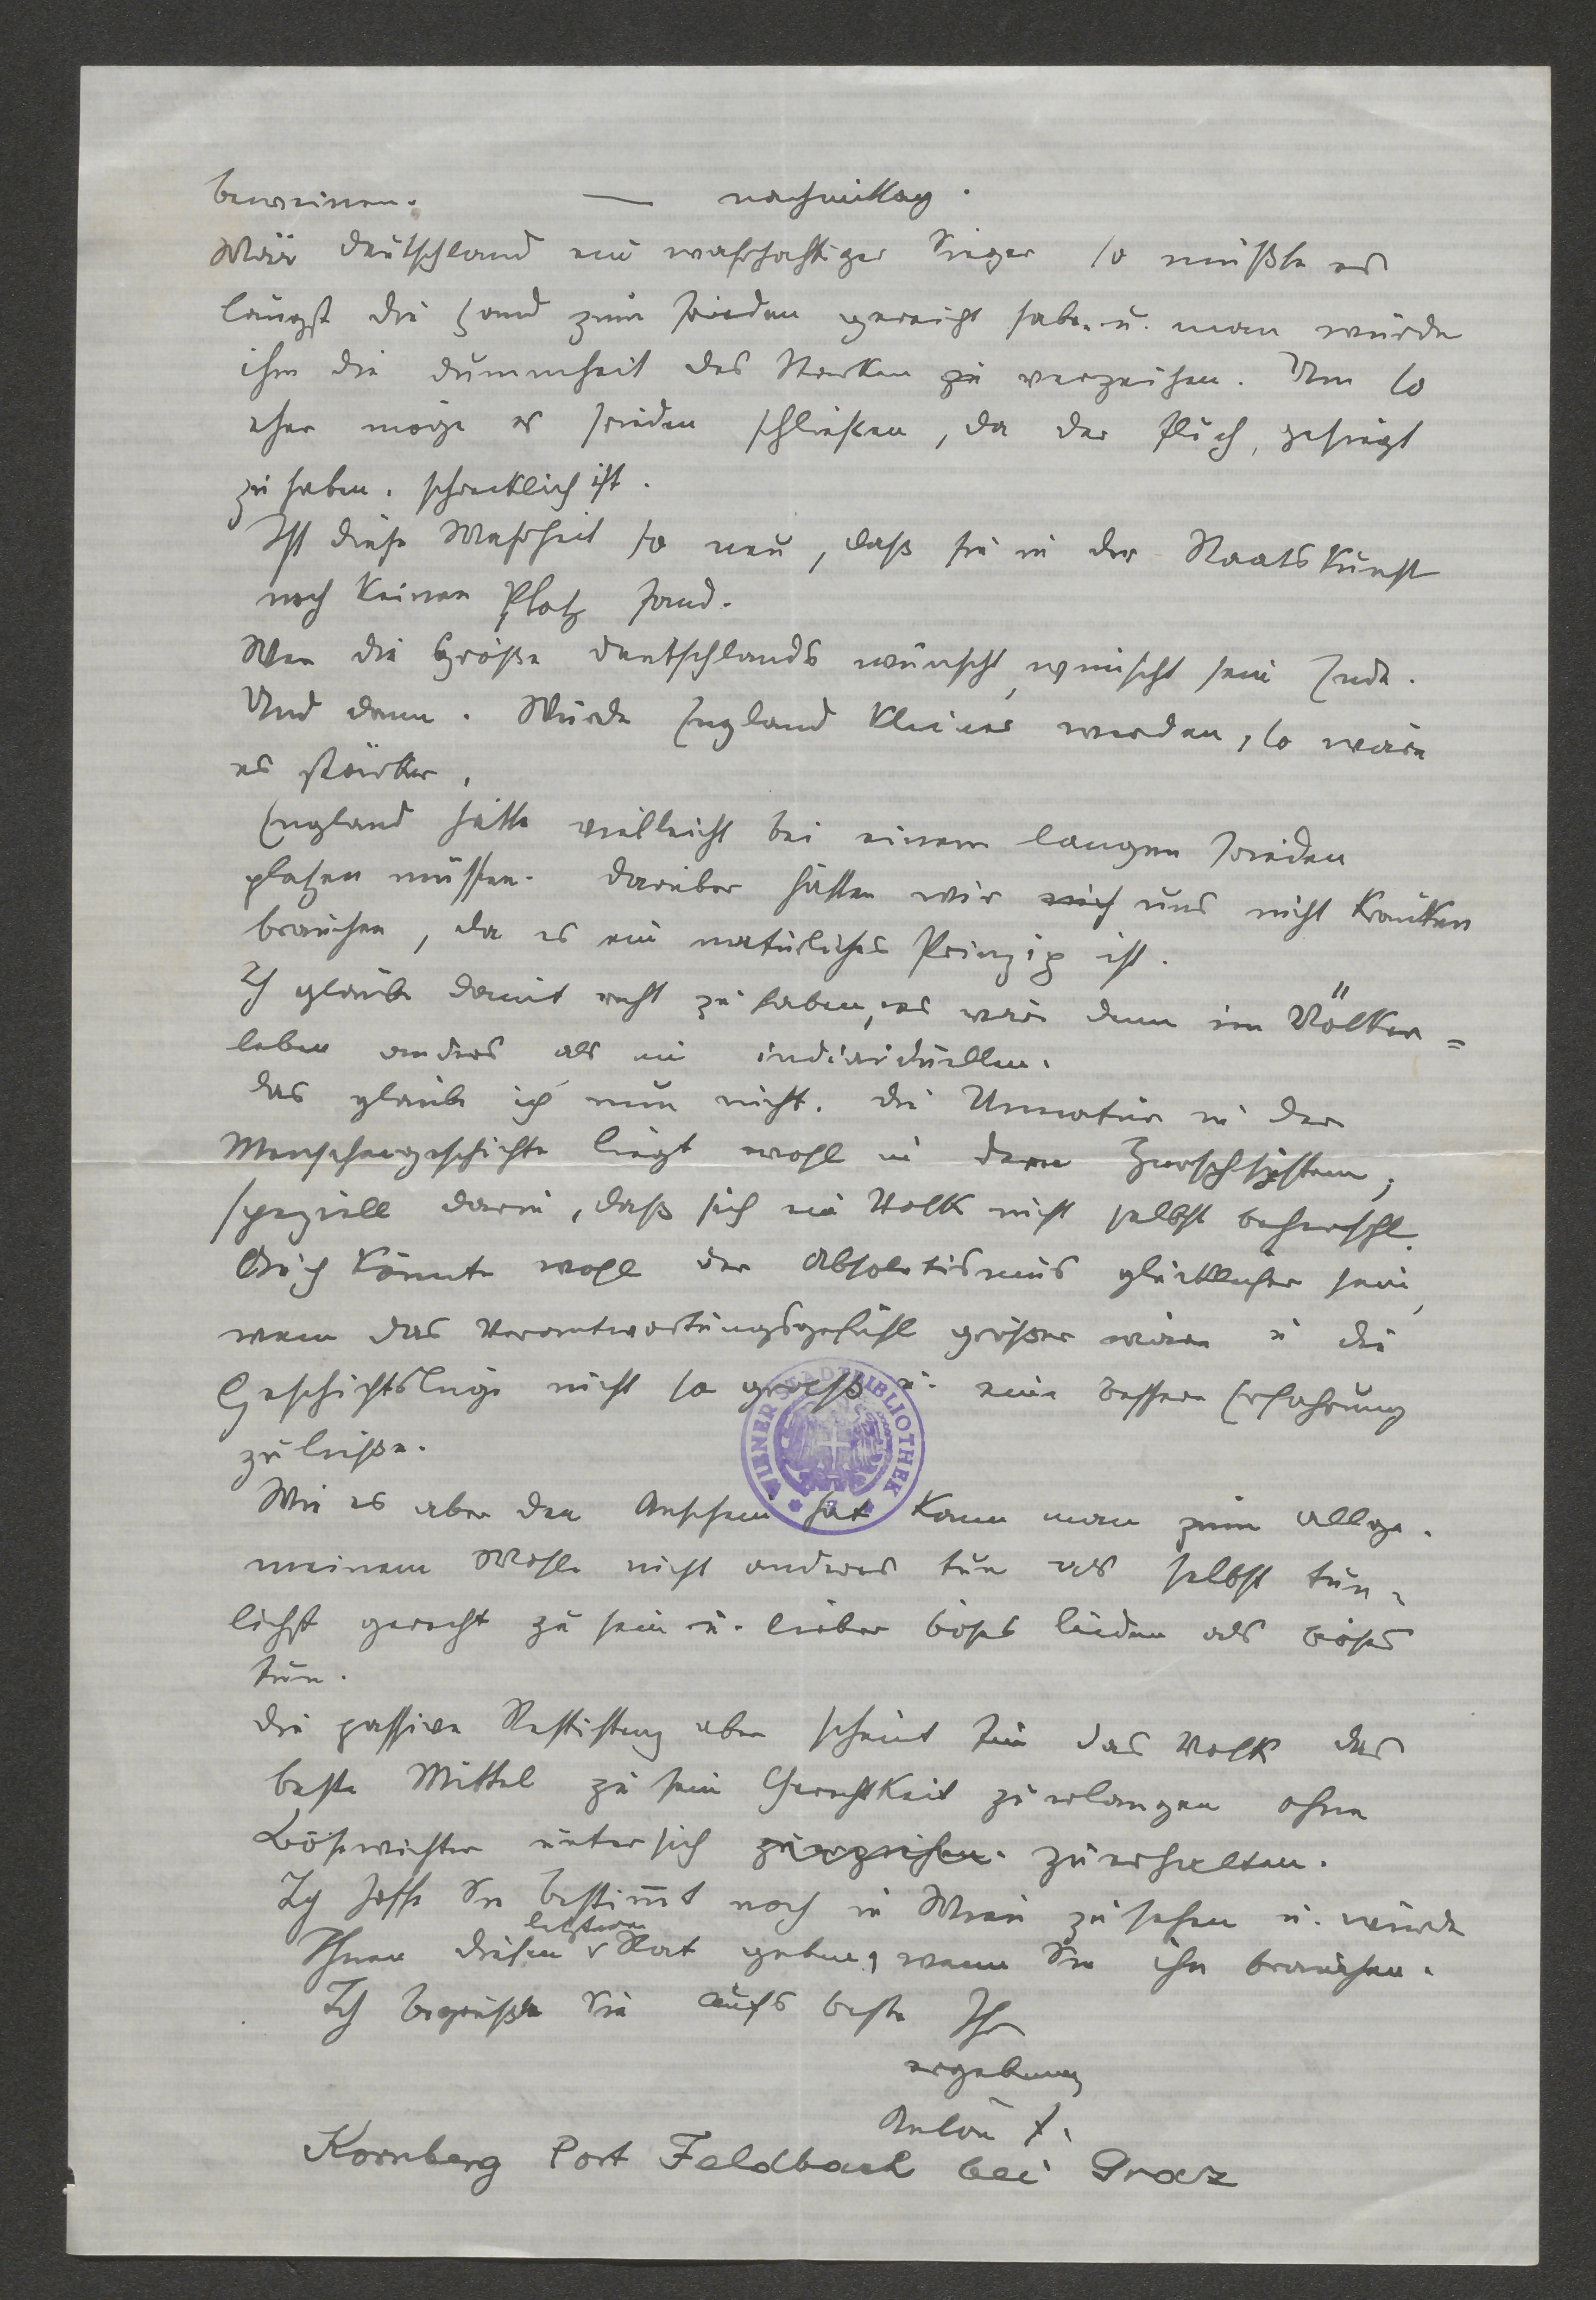 beweinen. — nachmittag.
Wär Deutschland ein wahrhaftiger Sieger so müßte es
längst die Hand zum Frieden gereicht habe. u. man würde
ihm die Dummheit des Starken zu verzeihen. Um so
eher möge es Frieden schließen, da der Fluch, gesiegt
zu haben, schrecklich ist.
Ist diese Wahrheit so neu, daß sie in der Staatskunst
noch keinen Platz fand.
Wer die Größe Deutschlands wünscht, wünscht sein Ende.
Und dann. Würde England kleiner werden, so wäre
es stärker.
England hätte vielleicht bei einem langen Frieden
platzen müssen. Darüber hätten wir mich uns nicht kränken
brauchen, da es ein natürliches Prinzip ist.
Ich glaube damit recht zu haben, es wär denn im Völker=
leben anders als im individuellen.
Das glaube ich nun nicht. Die Unnatur in der
Menschengeschichte liegt wohl in dem Herrschsystem,
speziell darin, daß sich ein Volk nicht selbst beherscht.
Auch könnte wohl der Absolutismus glücklicher sein,
wenn das Verantwortungsgefühl größer wäre u die
Geschichtslüge nicht so groß u. eine bessere Erfahrung
zuließe.
Wie es aber den Anschein hat kann man zum allge-
meinem Wohle nicht anderes tun als selbst tun-
lichst gerecht zu sein u. lieber böses leiden als böses
tun.
Die passive aber scheint für das Volk das
beste Mittel zu sein Gerechtkeit zu erlangen ohne
Bösewichter unter sich zu erhalten.
Ich hoffe Sie bestimmt noch in Wien zu sehen u. würde
Ihnen diesen letzteren Rat geben, wenn Sie ihn brauchen.
Ich begrüße Sie aufs beste Ihr
ergebener
Anton F.
Kornberg Post Feldbach bei Graz
WIENER STADTBIBLIOTHEK